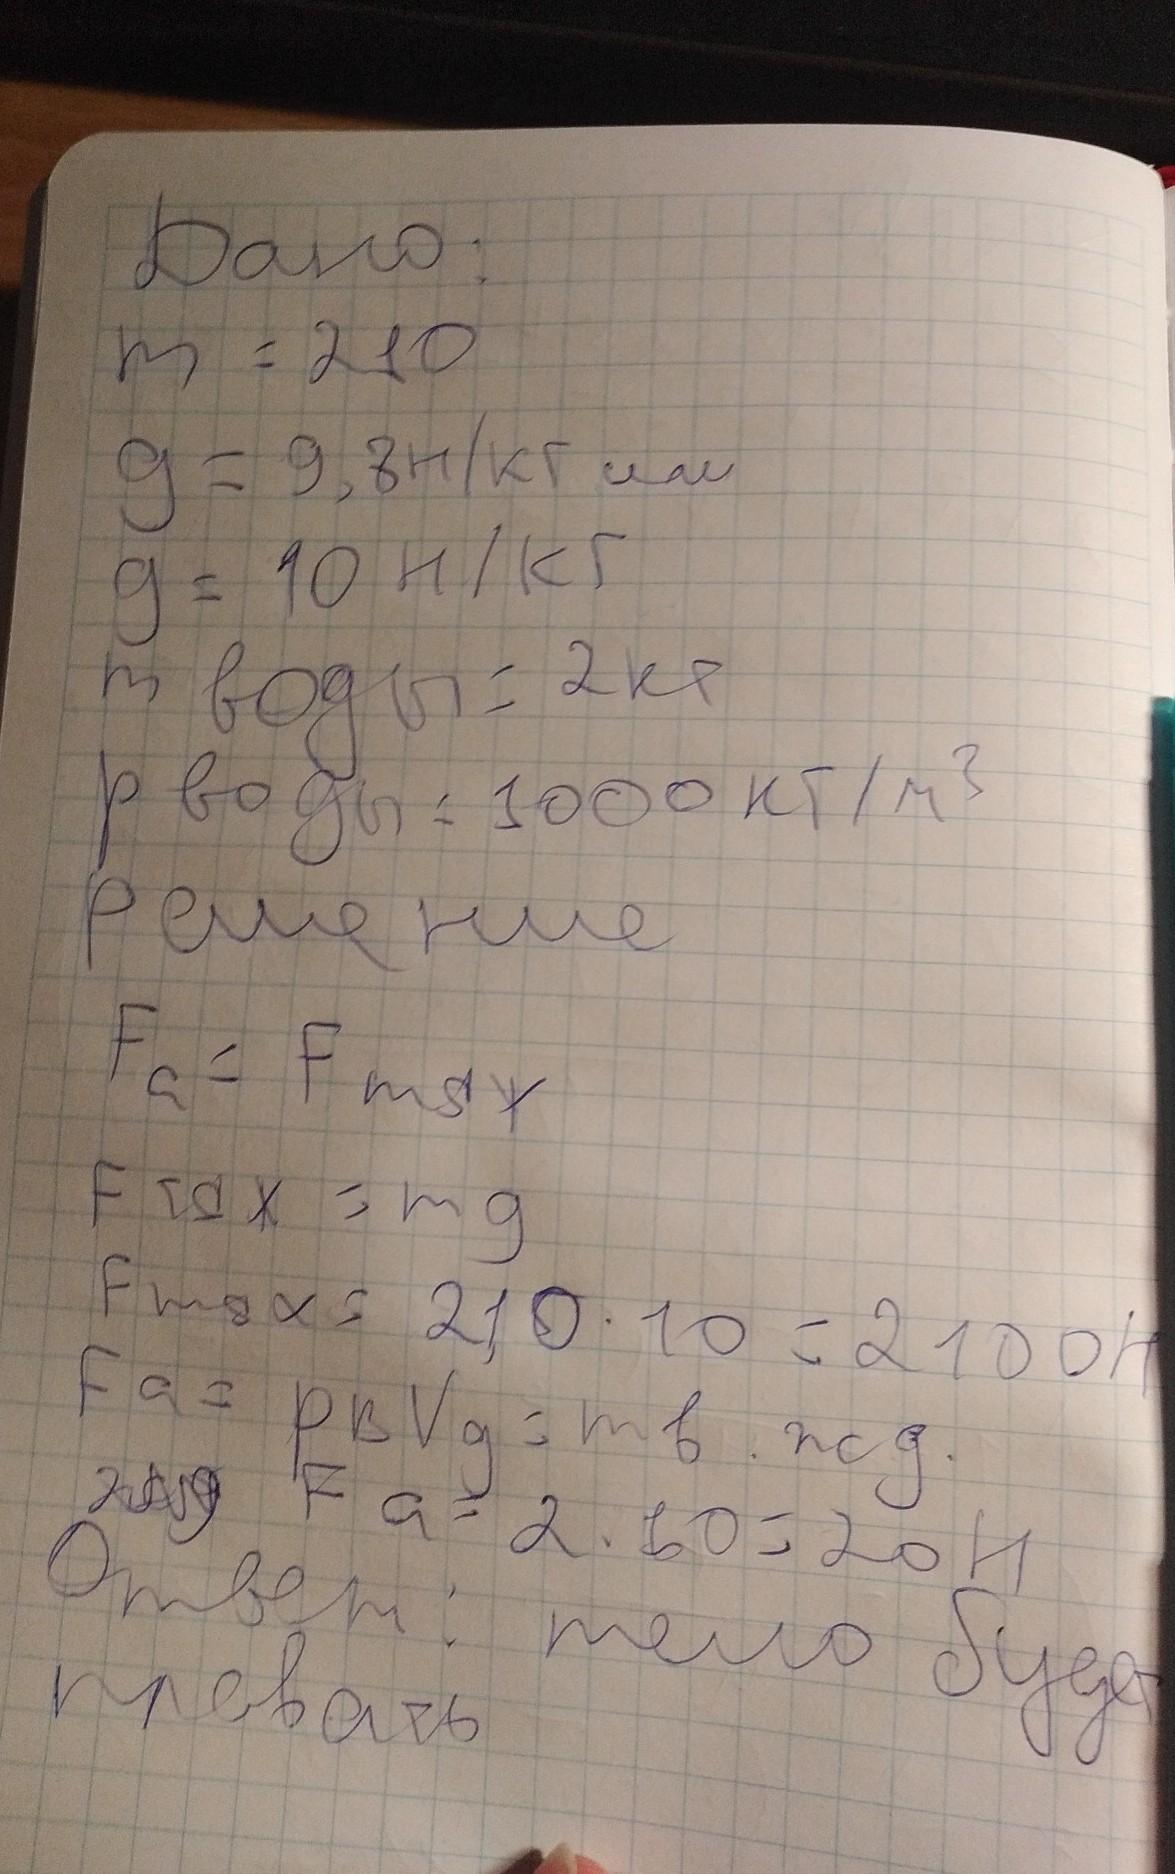 Дано:
m = 210
g = 9,8н/кг или
g = 10 н/кг
m воды = 2кг
р воды = 1000 кг/м³
Решение
Fа = Fтяж
Fтяж = mg
Fтяж = 210 · 10 = 2100Н
Fа = рвVg = mв · g.
Fа = 2 · 10 = 20Н
Ответ: тело будет
плавать